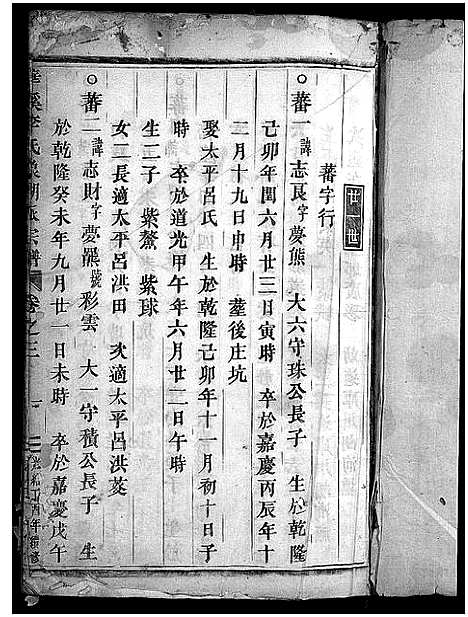 世世
蕃字行
蕃一諱志良字夢熊 大六守珠公長子 生於乾隆
己卯年閏六月廿三日寅時 卒於嘉慶丙辰年十
二月十九日申時 塟後庄坑
娶太平呂氏 生於乾隆己卯年十一月初十日子
時 卒於道光甲午年六月廿二日午時
生二子 紫鰲 紫球
女二長適太平呂洪田 次適太平呂洪菱
蕃二諱志財字夢羆號彩雲 大一守積公長子 生
於乾隆癸未年九月廿一日未時 卒於嘉慶戊午
李氏 宗譜 卷之三 一 光緒丁酉年重修